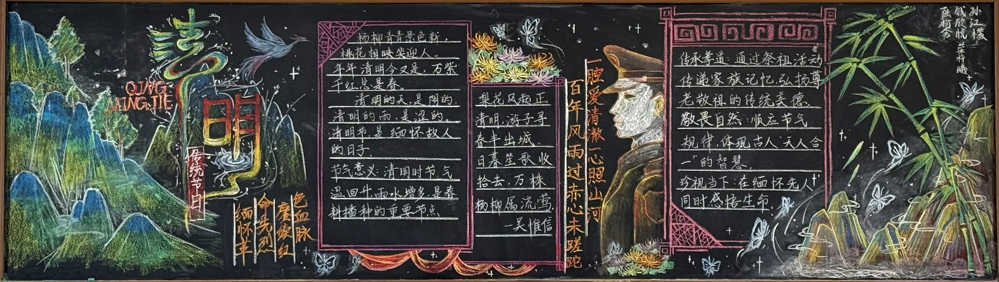 清
明
QING
MINGJIE
传统节日
杨柳青青景色新,
桃花相映笑迎人.
年年清明今又是,万紫
千红总是春.
清明的天,是阴的.
清明的雨,是湿的.
清明节是缅怀故人
的日子.
节气意义:清明时节气
温回升,雨水增多,是春
耕播种的重要节点
梨花风起正
清明,游子寻
春半出城.
日暮笙歌收
拾去,万株
杨柳属流莺.
—吴惟信
一腔爱清澈一心照山河
百年风雨过赤心未蹉跎
传承孝道:通过祭祖活动
传递家族记忆,弘扬尊
老敬祖的传统美德.
敬畏自然:顺应节气
规律,体现古人“天人合
一”的智慧
珍视当下:在缅怀先人
同时感悟生命.